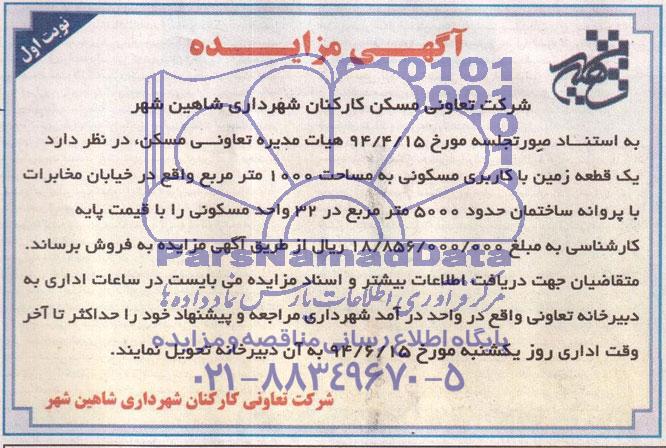 نوبت اول
آگهـی مزایـده
شرکت تعاونی مسکن کارکنان شهرداری شاهین شهر
به استناد صورتجلسه مورخ ۹۴/۴/۱۵ هیات مدیره تعاونی مسکن، در نظر دارد
یک قطعه زمین با کاربری مسکونی به مساحت ۱۰۰۰ متر مربع واقع در خیابان مخابرات
با پروانه ساختمان حدود ۵۰۰۰ متر مربع در ۳۲ واحد مسکونی را با قیمت پایه
کارشناسی به مبلغ ۱۸/۸۵۶/۰۰۰/۰۰۰ ریال از طریق آگهی مزایده به فروش برساند.
ParsNamadData
متقاضیان جهت دریافت اطلاعات بیشتر و اسناد مزایده می بایست در ساعات اداری به
مرکز فرآوری اطلاعات پارس نماد داده ها
دبیرخانه تعاونی واقع در واحد در آمد شهرداری مراجعه و پیشنهاد خود را حداکثر تا آخر
پایگاه اطلاع رسانی مناقصه و مزایده
وقت اداری روز یکشنبه مورخ ۹۴/۶/۱۵ به آن دبیرخانه تحویل نمایند.
۰۲۱-۸۸۳۴۹۶۷۰-۵
شرکت تعاونی کارکنان شهرداری شاهین شهر